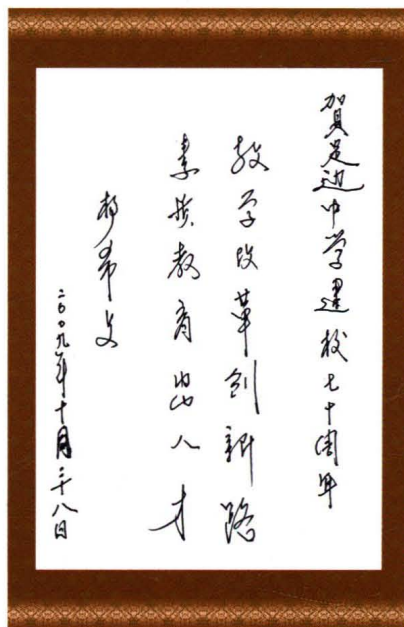 賀足边中学建校七十周年
教学改革创新路
素质教育出人才
郝希文
二00九年十月二十八日